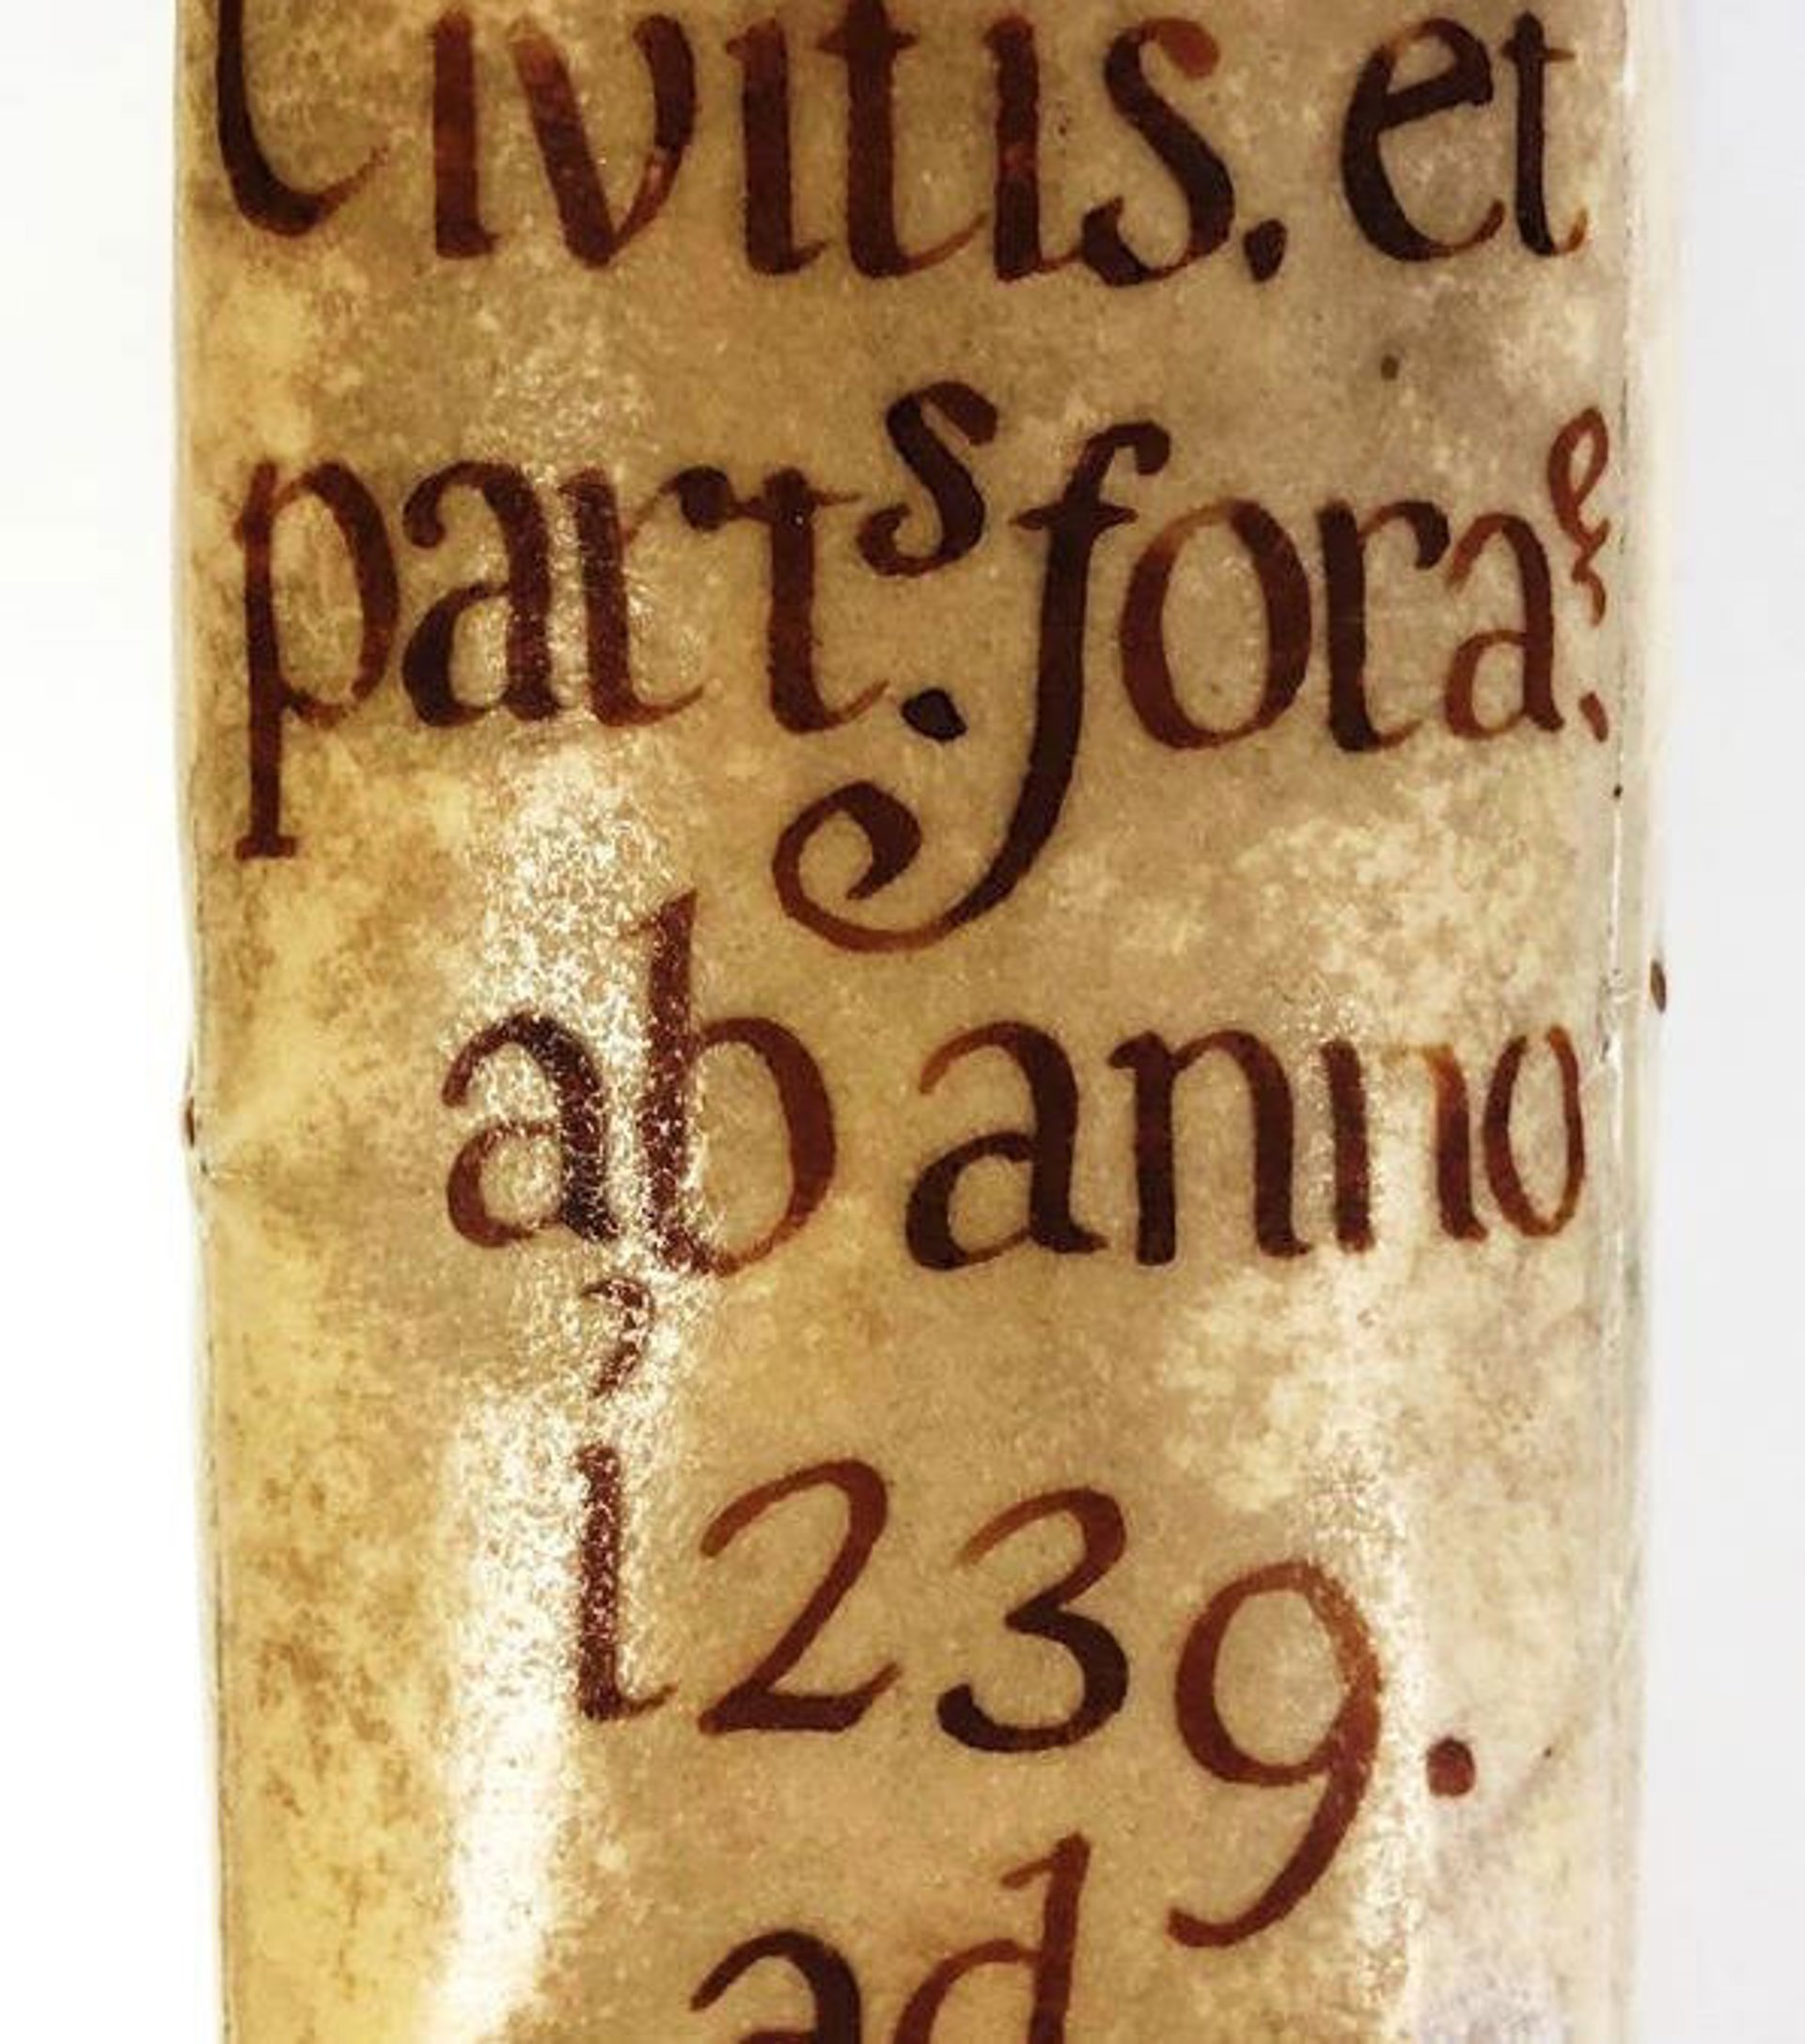 Civitis. et
part.ˢ foraˢ.
ab anno
1239.
ad